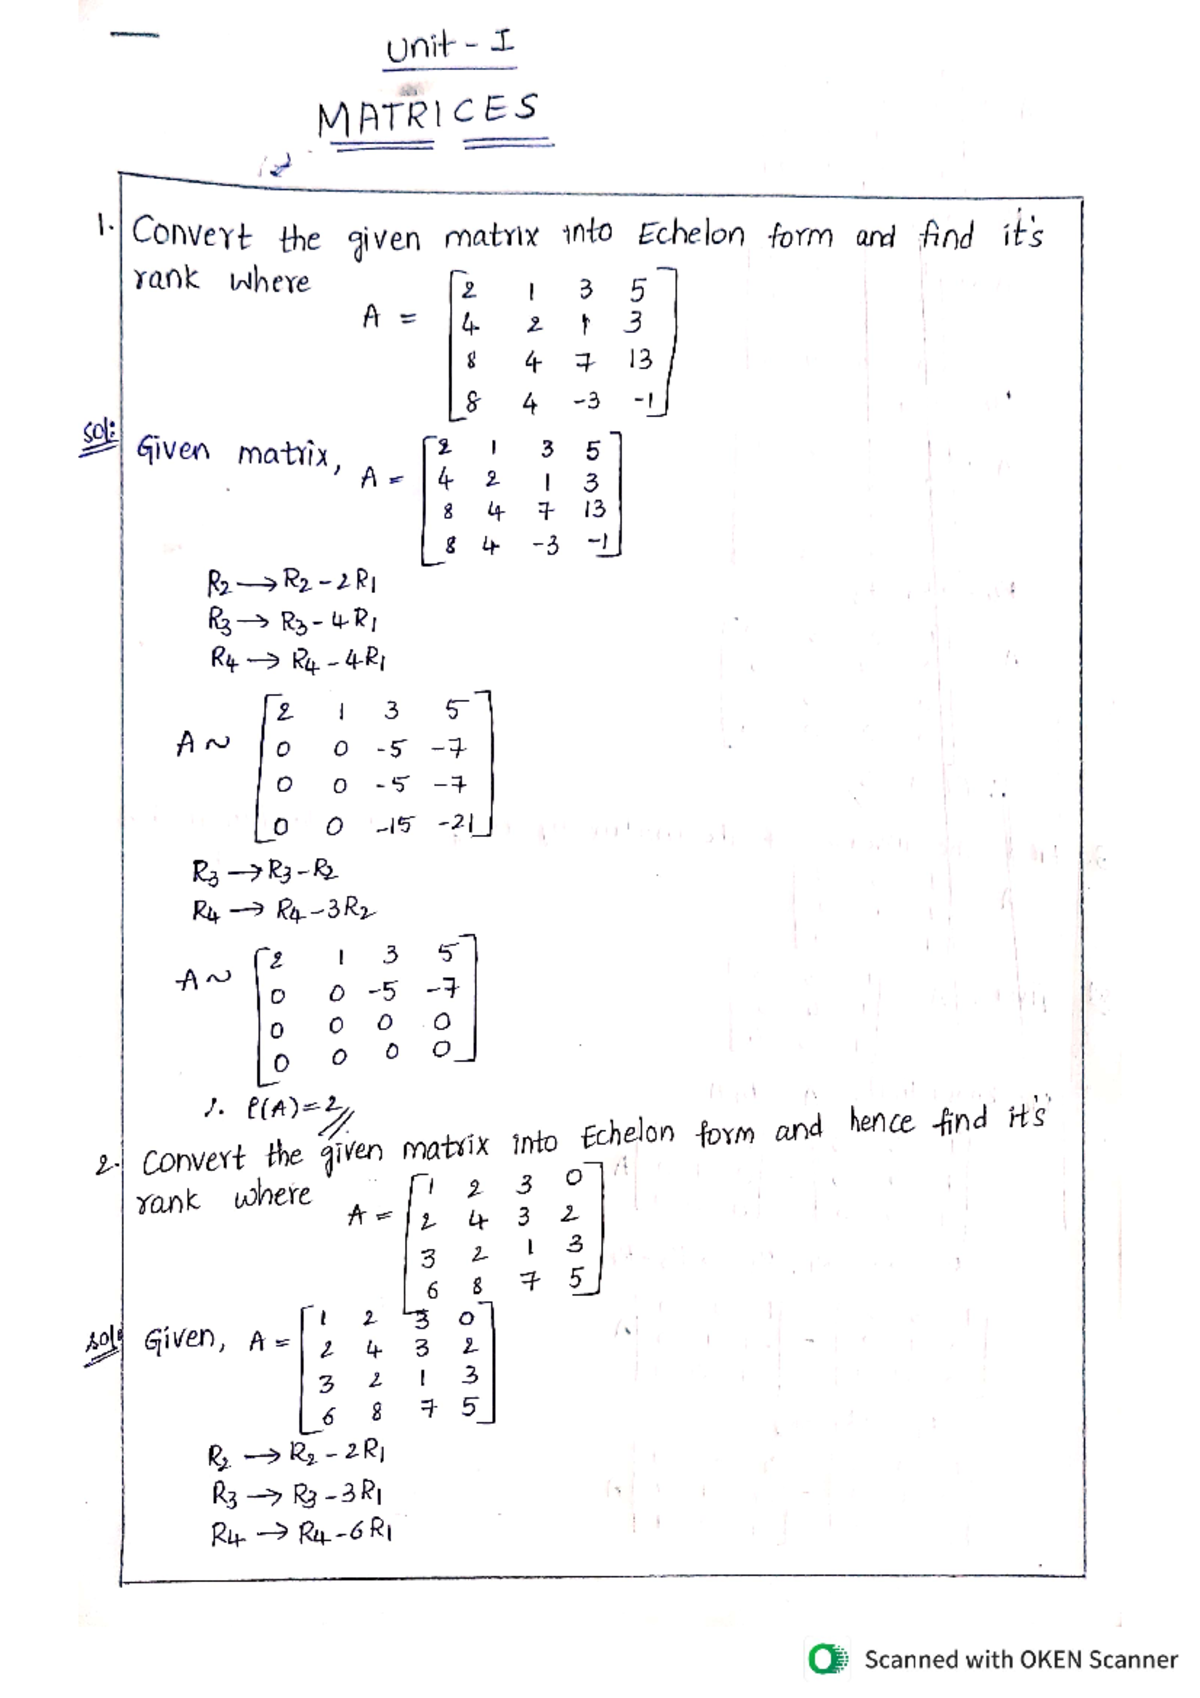 Unit - I
MATRICES
1. Convert the given matrix into Echelon form and find it's
rank where
A = [2 1 3 5
4 2 1 3
8 4 7 13
8 4 -3 -1]
Sol: Given matrix, A = [2 1 3 5
4 2 1 3
8 4 7 13
8 4 -3 -1]
R2 → R2 - 2R1
R3 → R3 - 4R1
R4 → R4 - 4R1
A ~ [2 1 3 5
0 0 -5 -7
0 0 -5 -7
0 0 -15 -21]
R3 → R3 - R2
R4 → R4 - 3R2
A ~ [2 1 3 5
0 0 -5 -7
0 0 0 0
0 0 0 0]
∴ ρ(A) = 2//
2. Convert the given matrix into Echelon form and hence find it's
rank where
A = [1 2 3 0
2 4 3 2
3 2 1 3
6 8 7 5]
Sol: Given, A = [1 2 3 0
2 4 3 2
3 2 1 3
6 8 7 5]
R2 → R2 - 2R1
R3 → R3 - 3R1
R4 → R4 - 6R1
Scanned with OKEN Scanner